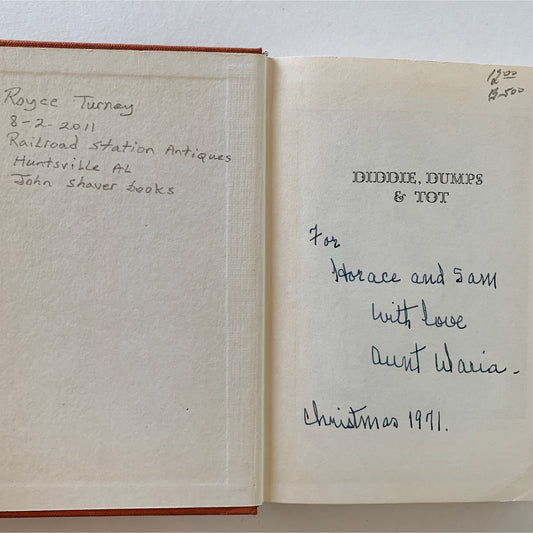 Royce Turney
8-2-2011
Railroad Station Antiques
Huntsville AL
John Shaver books
12.00
DIDDIE, DUMPS
& TOT
For
Horace and Sam
With love
Aunt Waria.
Christmas 1971.